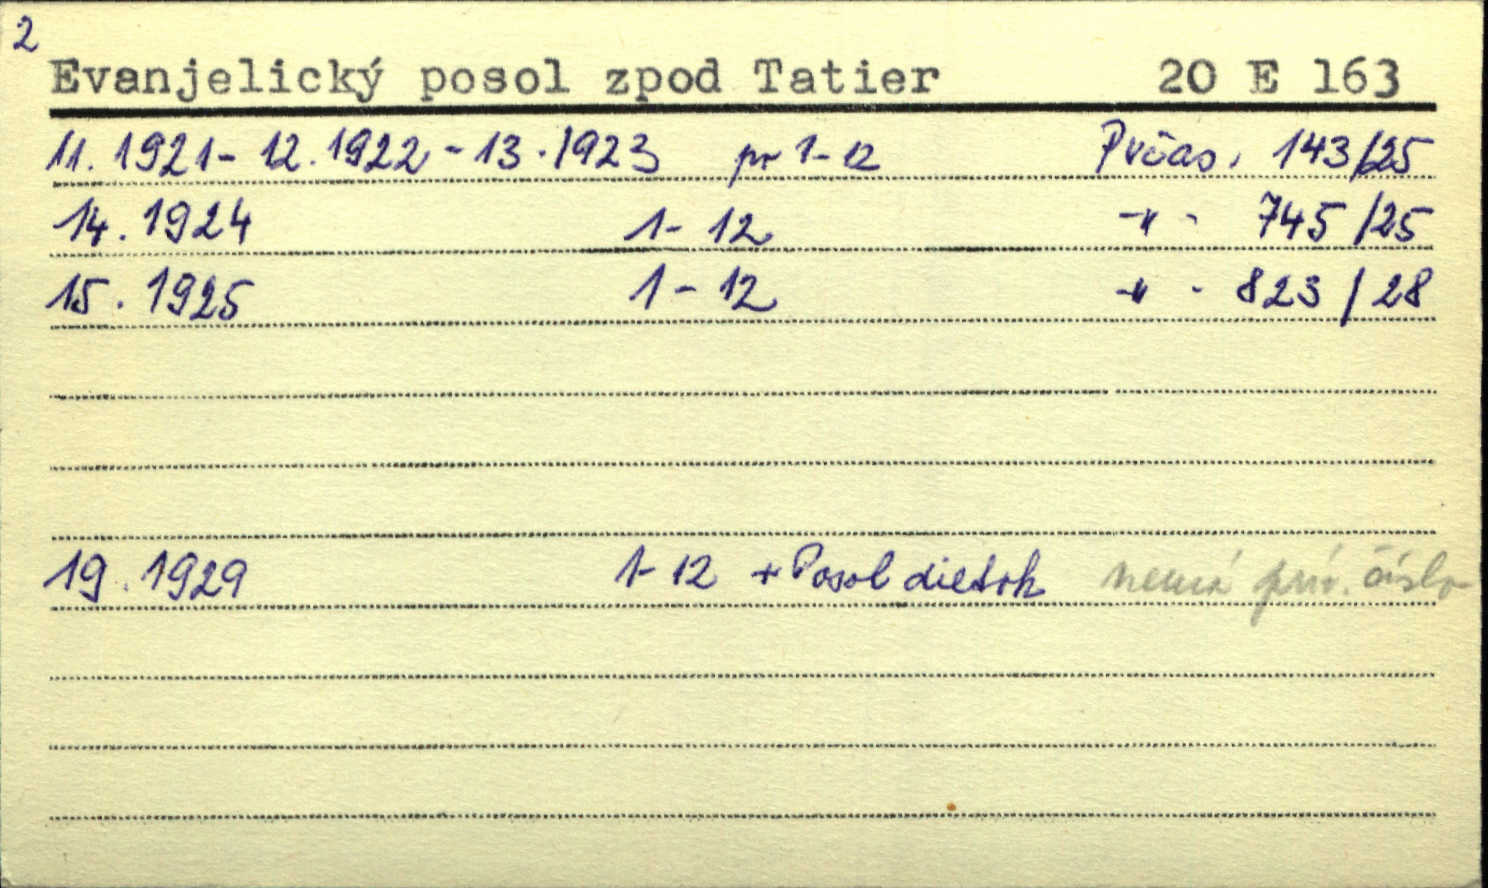 2
Evanjelický posol zpod Tatier 20 E 163
11. 1921 - 12. 1922 - 13. 1923 pr 1-12 Prčas. 143/25
14. 1924 1-12 -"- 745/25
15. 1925 1-12 -"- 823/28
19. 1929 1-12 + Posol dietok nemá prír. číslo